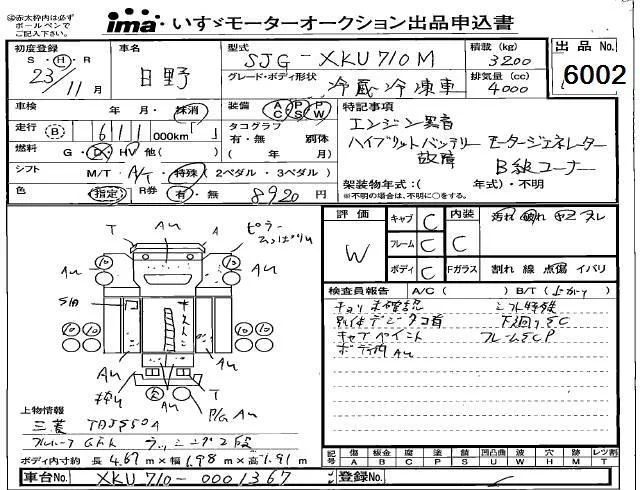 ◎赤太枠内は必ず
ボールペンで
ご記入下さい。
ima いすゞモーターオークション出品申込書
初度登録 S・H・R 23年 11月
車名 日野
型式 SJG-XKU710M
グレード・ボディ形状 冷蔵冷凍車
積載(kg) 3200
排気量(cc) 4000
出品No. 6002
車検 年・月・抹消
装備 AC PS PW
走行 B 611 000km「 」
タコグラフ 有・無 別体
( 年 月)
燃料 G・D・HV 他( )
シフト M/T・A/T・特殊(2ペダル・3ペダル)
色 (指定) R券 有・無 8920 円
特記事項
エンジン異音
ハイブリットバッテリー モータージェネレーター
故障 B級コーナー
架装物年式:( 年式)・不明
※不明の場合は、不明に○をする。
評価 W
キャブ C
フレーム C
ボディ C
内装 C 汚れ 破れ ヤニ スレ
Fガラス 割れ 線 点傷 イバリ
検査員報告 A/C( ) B/T(上がり)
キョリ未確認 シフト特殊
下廻りSC
キャブペイント フレームSCP
ボデー内 AU
ピラー
T AU A
AU AU
S/A
AU AU
T
AU P/G AU
上物情報
三菱 TDJS50A
ラッシング2段
ボディ内寸約 長 4.67 m×幅 1.98 m×高 1.91 m
記号 傷 鈑金 腐 塗 錆 凹凸曲 波 穴 跡 レツ割
A B C P S U W H M T
車台No. XKU710-0001367
登録No.